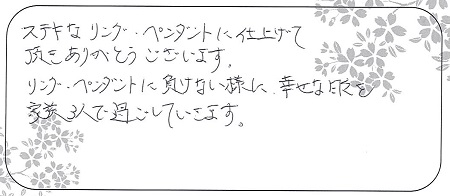 ステキな リング・ペンダントに仕上げて
頂きありがとうございます。
リング・ペンダントに負けない様に、幸せな日々を
家族3人で過ごしていきます。